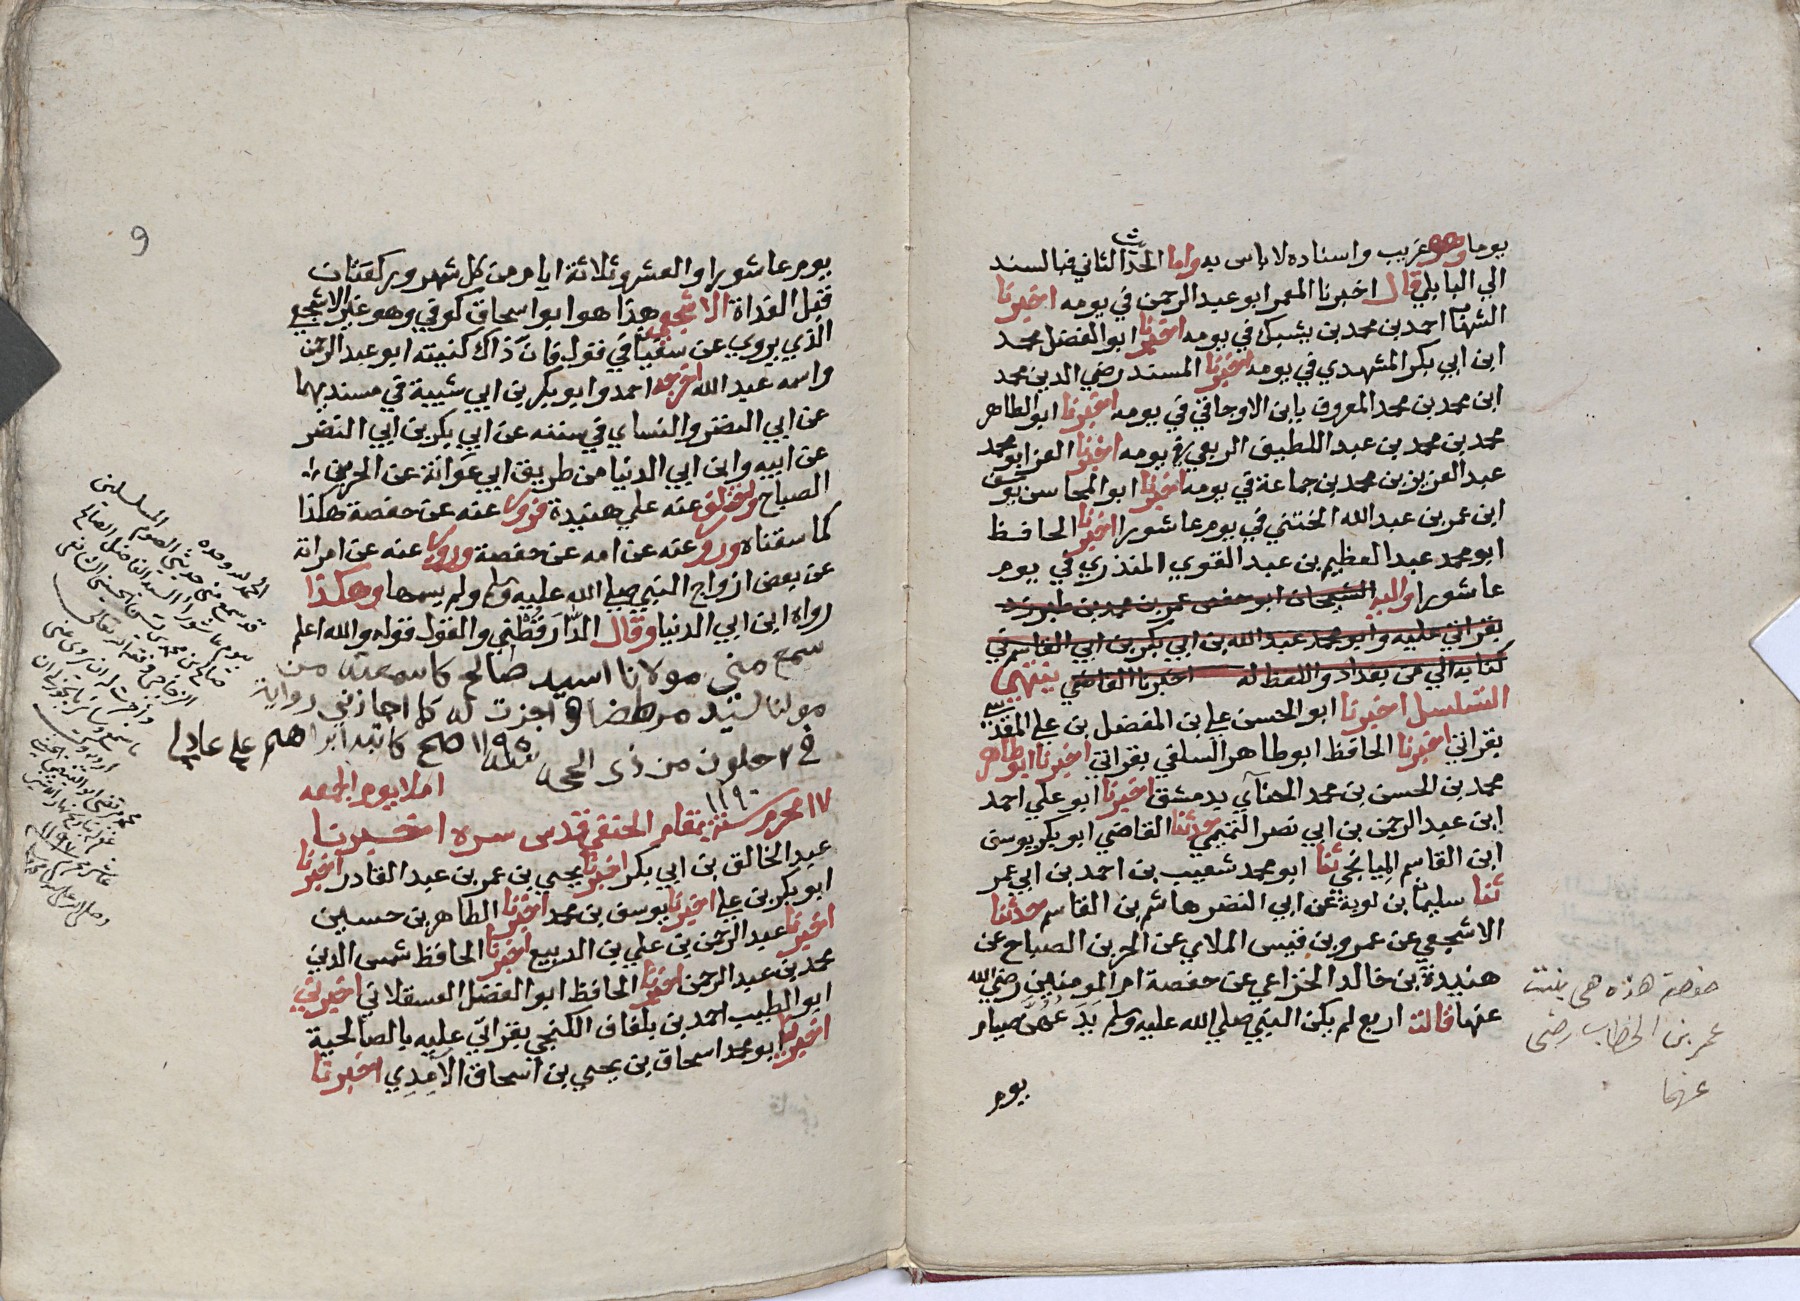 يوما وهو غريب واسناده لا باس به واما الحديث الثاني فبالسند
الي البابلي قال اخبرنا المعمر ابو عبد الرحمن في يومه اخبرنا
الشهاب احمد بن محمد بن يشبك في يومه اخبرنا ابو الفضل محمد
ابن ابي بكر المشهدي في يومه اخبرنا المسند رضي الدين محمد
ابن محمد بن محمد المعروف بابن الاوجاقي في يومه اخبرنا ابو الطاهر
محمد بن محمد بن عبد اللطيف الربعي في يومه اخبرنا العز ابو محمد
عبد العزيز بن محمد بن جماعة في يومه اخبرنا ابو المحاسن يوسف
ابن عمر بن عبد الله الختني في يوم عاشورا اخبرنا الحافظ
ابو محمد عبد العظيم بن عبد القوي المنذري في يوم
عاشورا واليه الشيخان ابو حفص عمر بن محمد بن طبرزد
بقراتي عليه وابو محمد عبد الله بن ابي بكر بن ابي القاسم في
كتابه الي من بغداد واللفظ له اخبرنا القاضي ينتهي
التسلسل اخبرنا ابو الحسن علي بن المفضل بن علي المقدسي
بقراتي اخبرنا الحافظ ابو طاهر السلفي بقراتي اخبرنا ابو طاهر
محمد بن الحسن بن محمد الحنآي بدمشق اخبرنا ابو علي احمد
ابن عبد الرحمن بن ابي نصر التميمي حدثنا القاضي ابو بكر يوسف
ابن القاسم الميانجي ثنا ابو محمد شعيب بن احمد بن ابي عمر
ثنا سليمان بن لوية عن ابي النضر هاشم بن القاسم حدثنا
الاشجعي عن عمرو بن قيس الملاي عن الحر بن الصباح عن
هنيدة بن خالد الخزاعي عن حفصة ام المومنين رضي الله
عنها قالت اربع لم يكن النبي صلي الله عليه وسلم يدعهن صيام
يوم
حفصة هذه هي بنت
عمر بن الخطاب رضي
عنها
9
يوم عاشورا والعشر وثلاثة ايام من كل شهر وركعتان
قبل الغداة الاشجعي هذا هو ابو اسحاق كوفي وهو غير الاشجعي
الذي يروي عن سفيان في قوله فان ذاك كنيته ابو عبد الرحمن
واسمه عبيد الله اخرجه احمد وابو بكر بن ابي شيبة في مسنديهما
عن ابي النضر والنساي في سننه عن ابي بكر بن ابي النضر
عن ابيه وابن ابي الدنيا من طريق ابي عوانة عن الحر بن
الصباح واختلف عنه علي هنيدة فروي عنه عن حفصة هكذا
كما سقناه وروي عنه عن امه عن حفصة وروي عنه عن امراته
عن بعض ازواج النبي صلي الله عليه وسلم ولم يسمها وهكذا
رواه ابن ابي الدنيا وقال الدارقطني والقول قوله والله اعلم
سمع مني مولانا السيد صالح كما سمعته من
مولنا السيد مرتضا واجزت له كما اجازني رواية
في ٢ خلون من ذي الحجة سنة ١١٩٥ صح كاتبه ابراهيم علي
املا يوم الجمعه
١٧ محرم سنة ١١٩٠ بمقام الحنفي قدس سره اخبرنا
عبد الخالق بن ابي بكر اخبرنا يحيي بن عمر بن عبد القادر اخبرنا
ابو بكر بن علي اخبرنا يوسف بن محمد اخبرنا الطاهر بن حسين
اخبرنا عبد الرحمن بن علي بن الديبع اخبرنا الحافظ شمس الدين
محمد بن عبد الرحمن اخبرنا الحافظ ابو الفضل العسقلاني اخبرني
ابو الطيب احمد بن بلغاق الكنجي بقراتي عليه بالصالحية
اخبرنا ابو محمد اسحاق بن يحيي بن اسحاق الآمدي اخبرنا
الحمد لله وحده
قد سمع مني حديثي الصوم المسلسلين
بيوم عاشورا السيد الفاضل الصالح